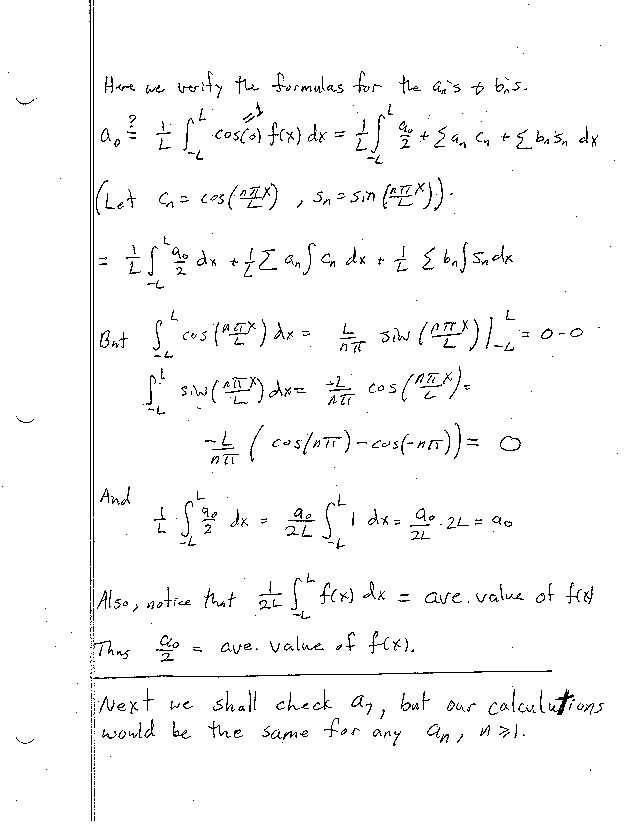 Here we verify the formulas for the aₙ's & bₙ's.
a₀ ≟ 1/L ∫_{-L}^{L} cos(0) f(x) dx = 1/L ∫_{-L}^{L} a₀/2 + Σ aₙ cₙ + Σ bₙ sₙ dx
(Let cₙ = cos(nπx/L) , sₙ = sin(nπx/L)).
= 1/L ∫_{-L}^{L} a₀/2 dx + 1/L Σ aₙ ∫ cₙ dx + 1/L Σ bₙ ∫ sₙ dx
But ∫_{-L}^{L} cos(nπx/L) dx = L/nπ sin(nπx/L) |_{-L}^{L} = 0-0
∫_{-L}^{L} sin(nπx/L) dx = -L/nπ cos(nπx/L) =
-L/nπ ( cos(nπ) - cos(-nπ)) = 0
And
1/L ∫_{-L}^{L} a₀/2 dx = a₀/2L ∫_{-L}^{L} 1 dx = a₀/2L · 2L = a₀
Also, notice that 1/2L ∫_{-L}^{L} f(x) dx = ave. value of f(x)
Thus a₀/2 = ave. value of f(x).
Next we shall check a₇, but our calculations
would be the same for any aₙ, n ≥ 1.